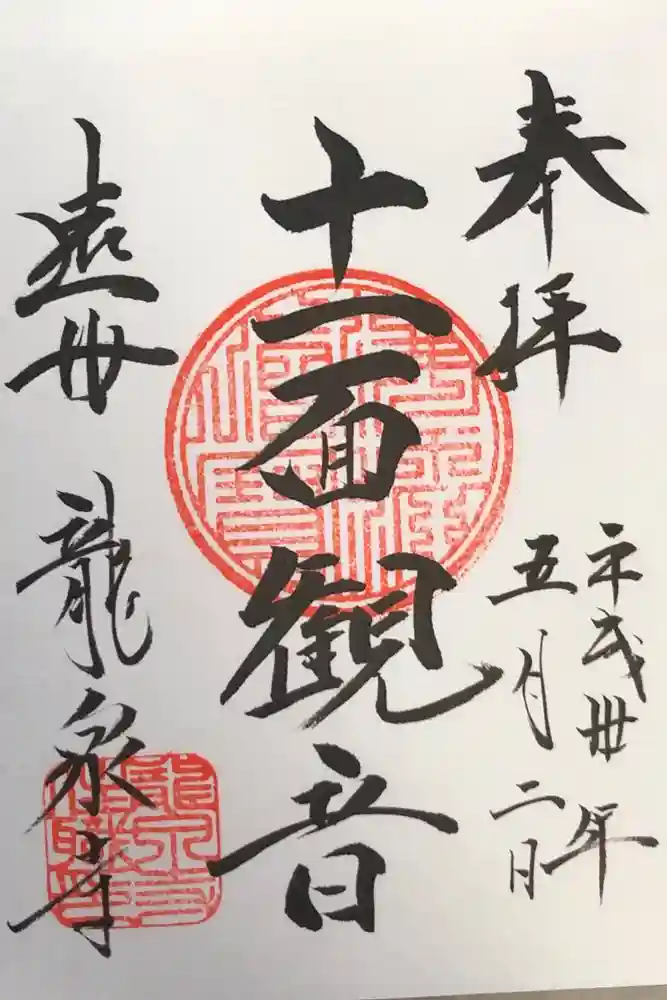 奉拝
平成卅年
五月二日
十一面観音
遠州 龍泉寺
龍泉寺
住職印